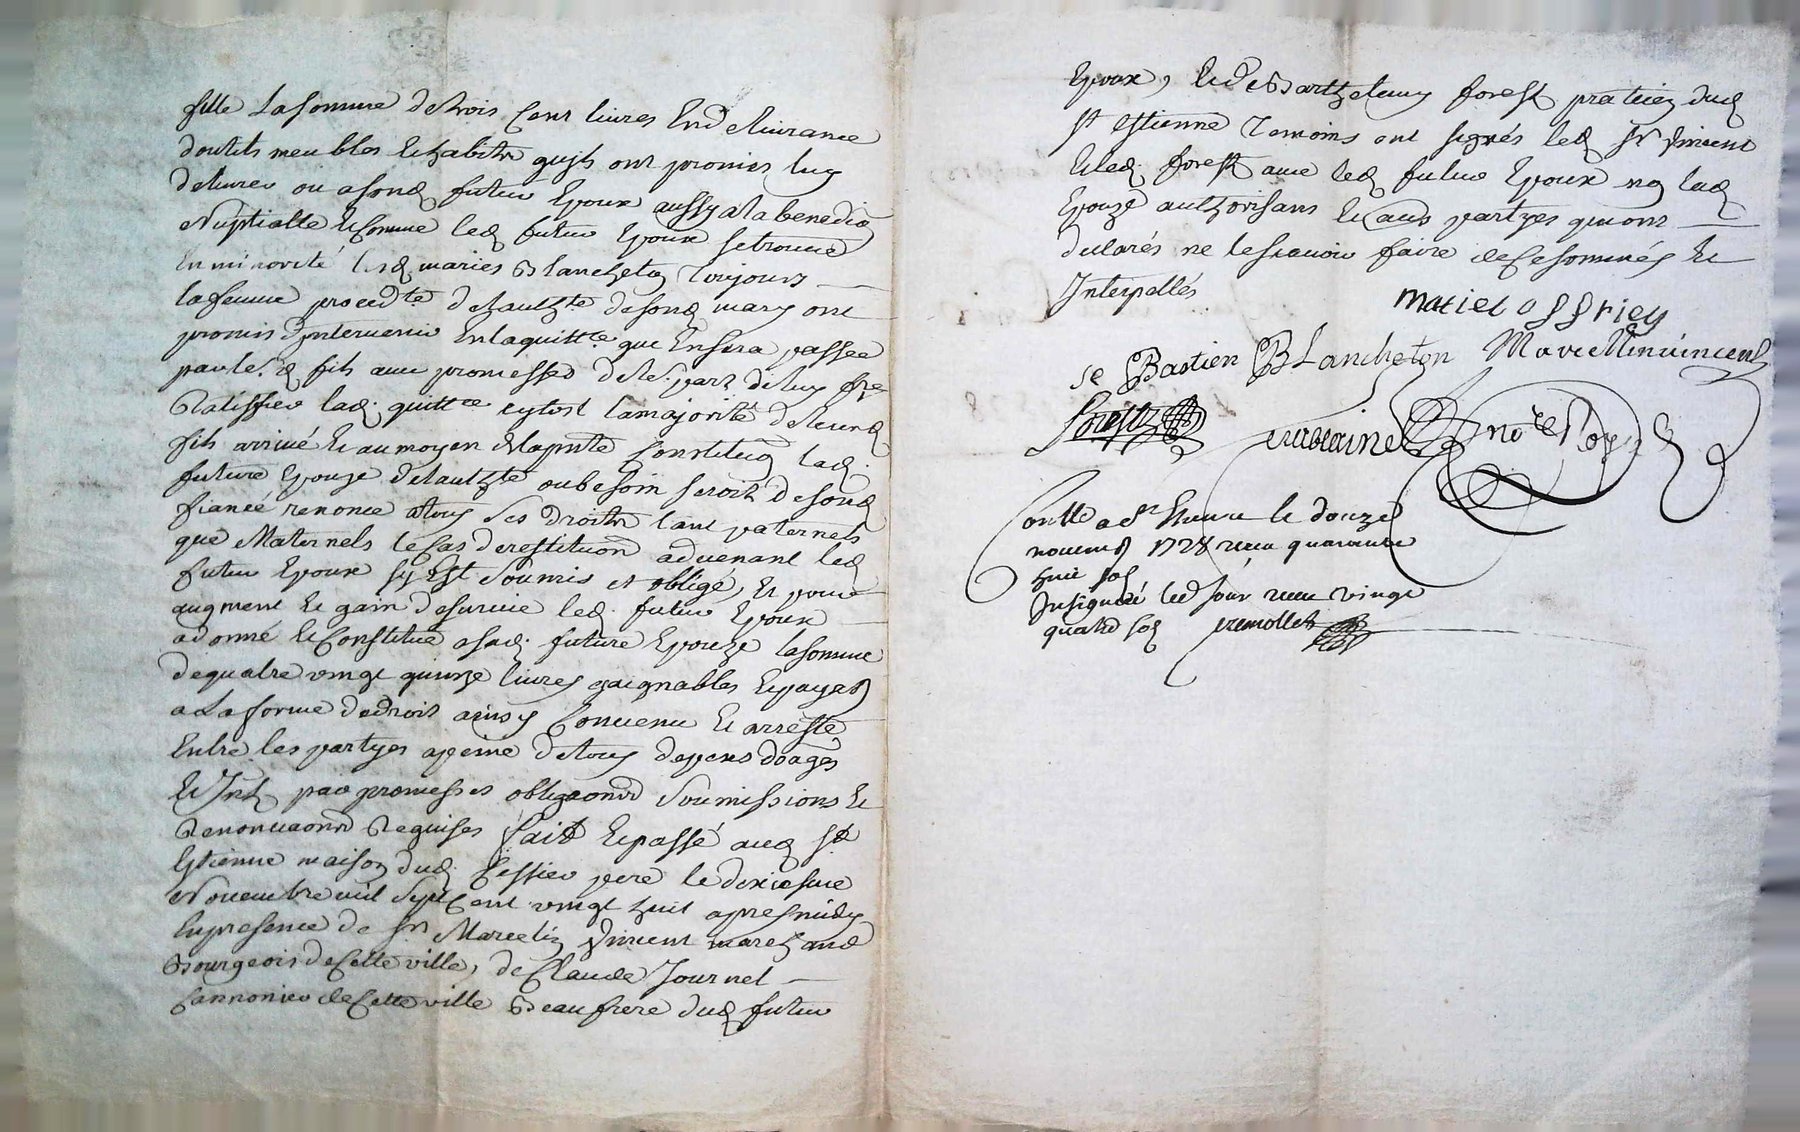 fille la somme de trois cent livres En delivrance
doutils meubles et habitz quils ont promis luy
delivrer ou a sond futur Epoux aussy a la benedion
Nuptialle Et Comme led futur Epoux se trouve
En minorité lesd mariés Blancheton Toujours
la femme procedte de lauthte de sond mary ont
promis dintervenir En la quittce que En sera passée
par led fils avec promesses de le part de luy fre
Ratiffier lad. quittce sytost la majorité de leurd
fils arrivé Et au moyen de la pnte Constituon lad.
future Epouze de lauthte ou besoin seroit de sond
fiancé renonce a tous ses droitz tant paternels
que Maternels le Cas de restitution advenant led
futur Epoux sy Est soumis et obligé, Et pour
augment Et gain de survie led. futur Epoux
a donné Et Constitué a sad. future Epouze la somme
de quatre vingt quinze livres gaignables Et payabs
a La forme de droit ainsy Convenu Et arresté
Entre les partyes a peine de tous depens doages
Et Intz par promesses obligaonns soumissions Et
Renonciaonns Requises fait Et passé aud St
Estienne maison dud. Tessier pere le dixiesme
Novembre mil Sept Cent vingt huit apres midy
En presence de Sr Marcelin Vincent marchand
Bourgeois de Cette ville, de Claude Journel
Cannonier de Cette ville Beaufrere dud futur
Epoux, Et de Barthelemy forest praticien dud
St Estienne Temoins ont signés led Sr Vincent
Et led. forest avec led futur Epoux no lad
Epouze authorisans Et aus partyes qui ont
declarés ne le scavoir faire de Ce sommés Et
Interpellés
se Bastien BLancheton Marcellin vincent
forest nore Roy
Contlle a St Etienne le douze
novemb 1728 receu quarante
huit sols
Insignué led jour receu vingt
quatre sols